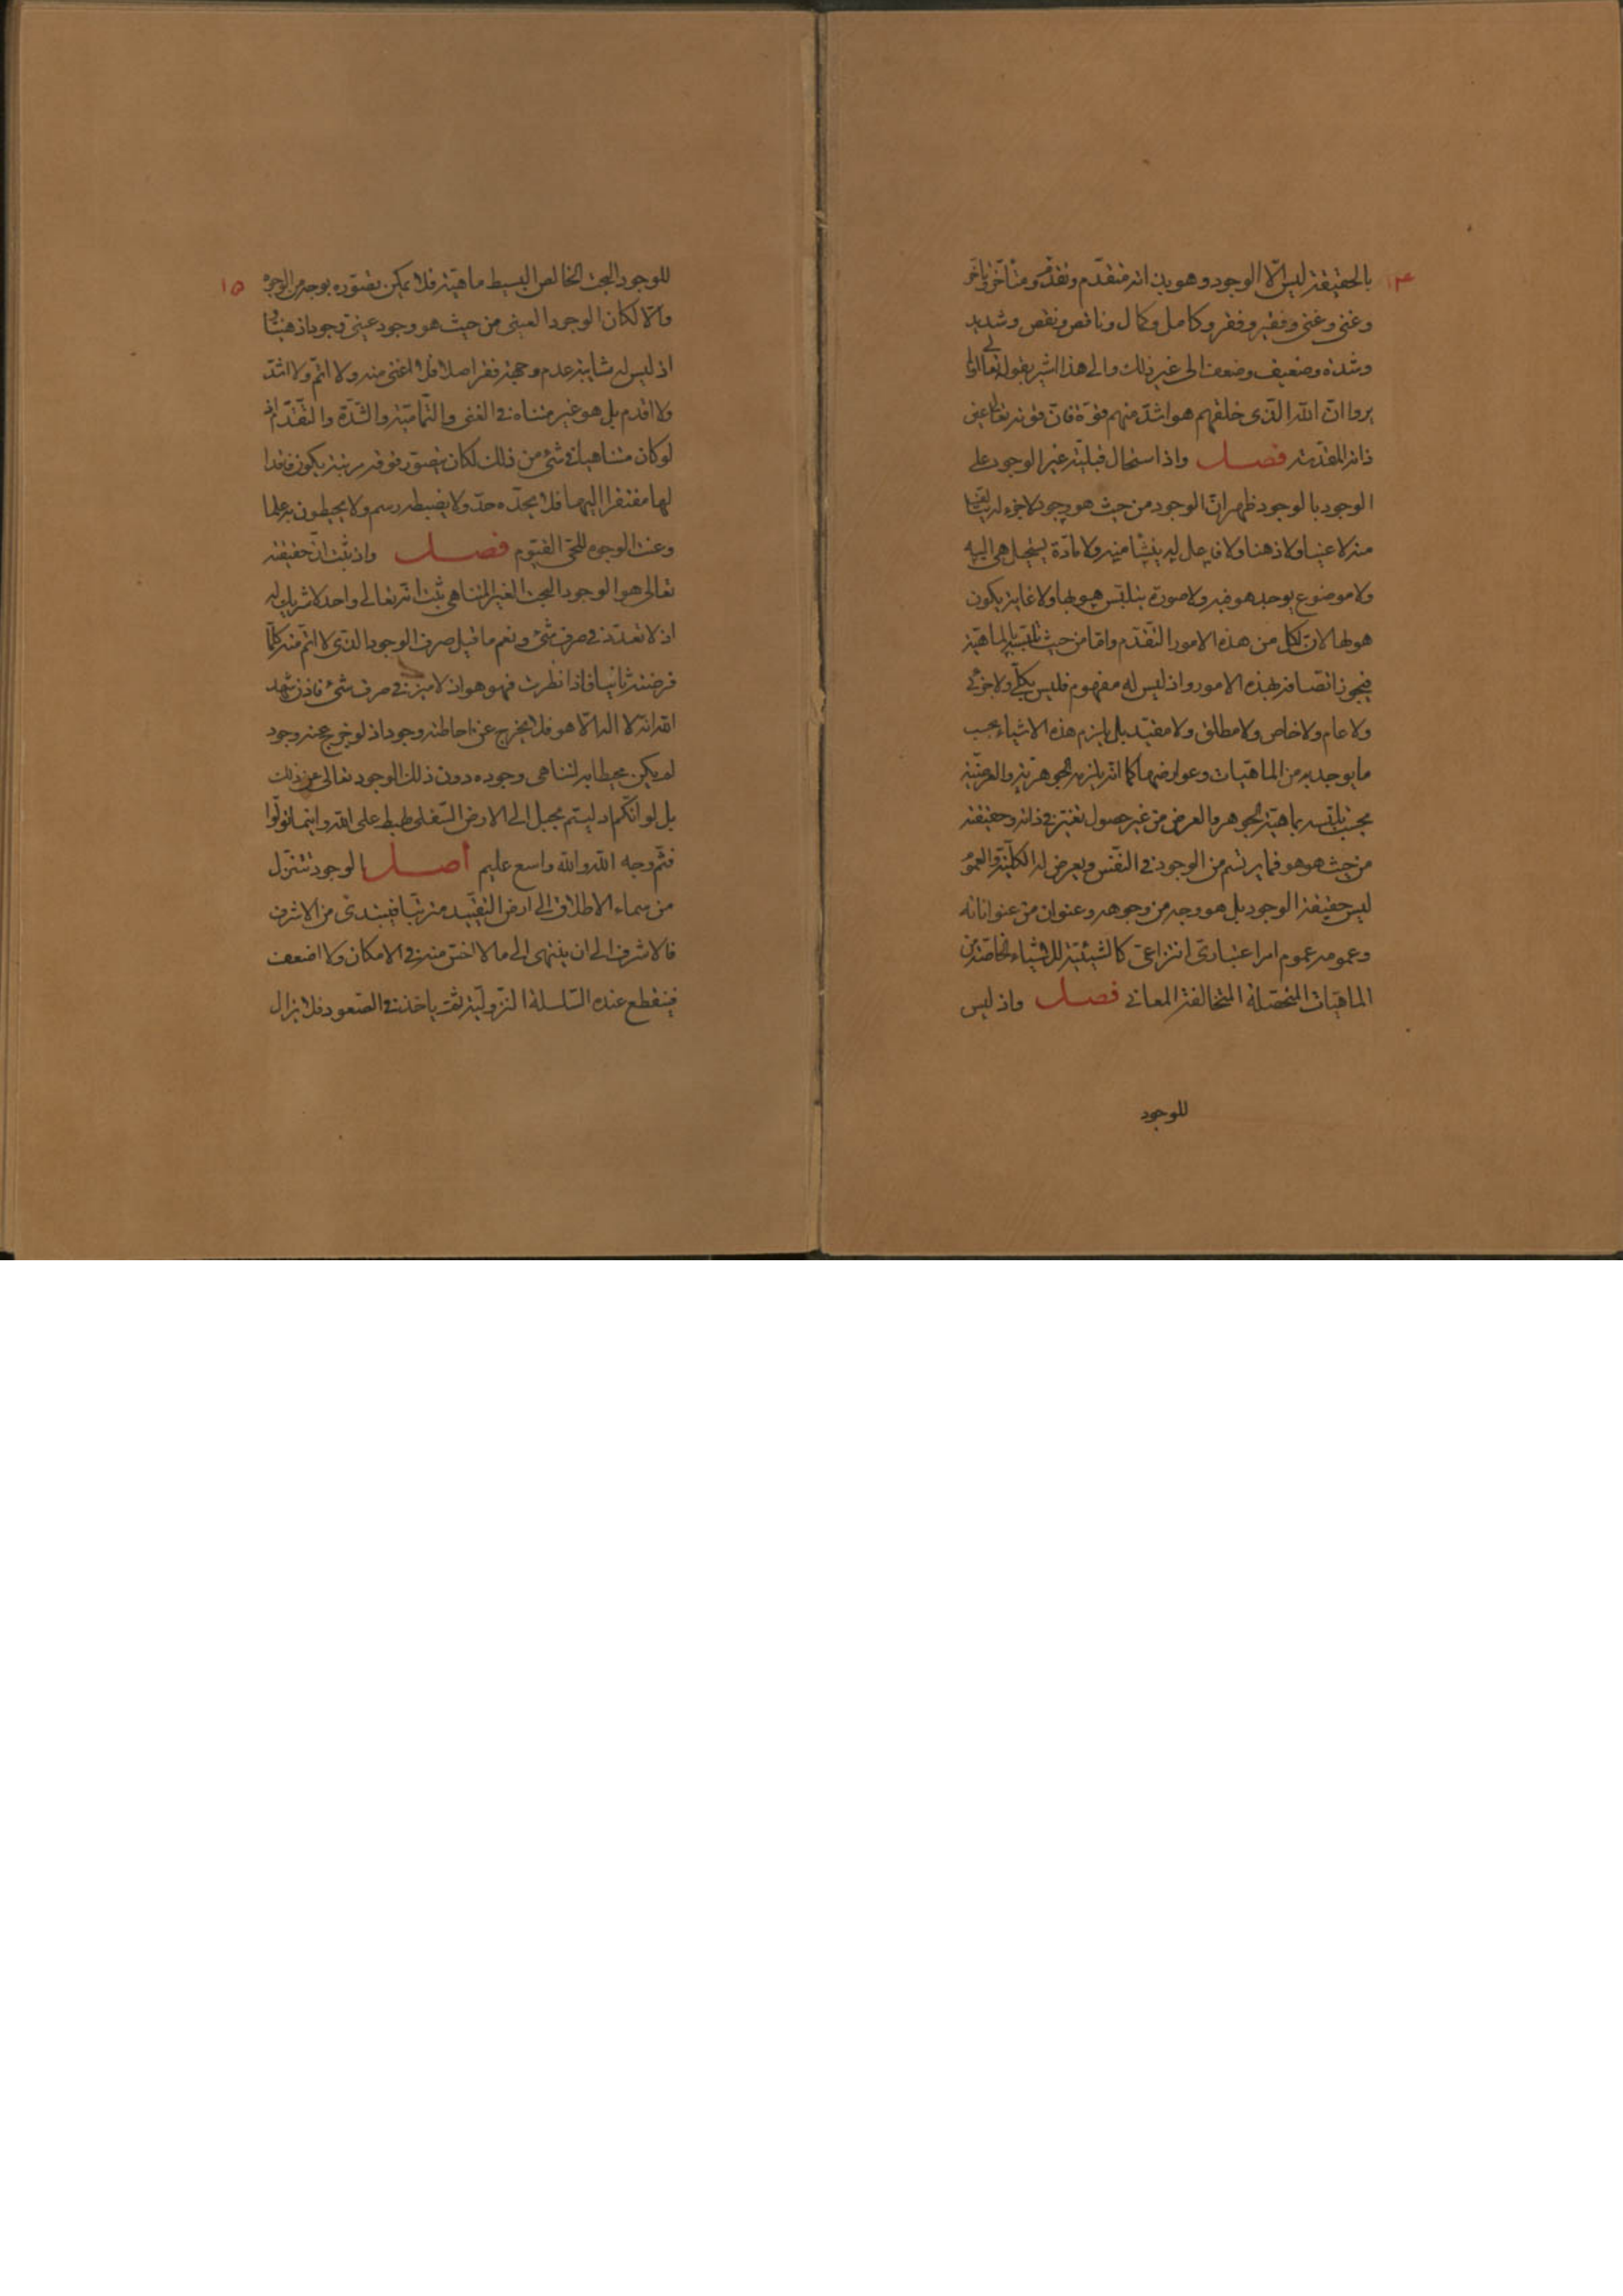 ١٤
بالحقيقة ليس الّا الوجود وهو بذاته متقدّم وتقدّم ومتأخّر وتأخّر
وغنى وغنىّ وفقير وفقر وكامل وكمال وناقص ونقص وشديد
وشدّة وضعيف وضعف الى غير ذلك والى هذا اشير بقوله تعالى اولم
يروا انّ الله الذى خلقهم هو اشدّ منهم قوّة فانّ قوته تعالى عين
ذاته المقدّسة فصل واذا استحال قبليّة غير الوجود على
الوجود بالوجود ظهر انّ الوجود من حيث هو وجود لا جزء له
منه لا عينيا ولا ذهنا ولا فاعل له ينشأ منه ولا مادّة يستحيل هى اليه
ولا موضوع يوجد هو فيه ولا صورة يتلبّس هو بها ولا غاية يكون
هو لها لانّ لكل من هذه الامور التّقدّم وامّا من حيث تلبّسه بالماهيّة
فيجوز اتّصافه بهذه الامور واذ ليس له مفهوم فليس بكلّى ولا جزئى
ولا عام ولا خاص ولا مطلق ولا مقيّد بل يلزم هذه الاشياء بحسب
ما يوجد به من الماهيّات وعوارضها كما انّه يلزمه الجوهريّة والعرضيّة
بحسب تلبّسه بماهيّة الجوهر والعرض من غير حصول تغيّر فى ذاته وحقيقته
من حيث هو هو فما يرتسم من الوجود فى النّفس ويعرض له الكلّية والعموم
ليس حقيقة الوجود بل هو وجه من وجوهه وعنوان من عنواناته
وعمومه عموم امر اعتبارىّ انتزاعىّ كالشيئيّة للاشياء الخاصّة من
الماهيّات المتحصّلة المتخالفة المعانى فصل واذ ليس
للوجود
١٥
للوجود البحت الخالص البسيط ماهيّة فلا يمكن تصوّره بوجه من الوجوه
والّا لكان الوجود العينى من حيث هو وجود عينىّ وجودا ذهنيّا و
اذ ليس له شايبة عدم وجهة فقر اصلا فلا اغنى منه ولا اتمّ ولا اشدّ
ولا اقدم بل هو غير متناه فى الغنى والتّماميّة والشّدّة والتّقدّم اذ
لو كان متناهيا فى شئ من ذلك لكان يتصوّر فوقه مرتبة يكون فاقدا
لها مفتقرا اليها فلا يحدّه حدّ ولا يضبطه رسم ولا يحيطون به علما
وعنت الوجوه للحىّ القيّوم فصل واذ ثبت انّ حقيقته
تعالى هو الوجود البحت الغير المتناهى ثبت انّه تعالى واحد لا شريك له
اذ لا تعدّد فى صرف شئ ونعم ما قيل صرف الوجود الذى لا اتمّ منه كلّما
فرضته ثانيا فاذا نظرت فهو هو اذ لا ميز فى صرف شئ فاذن شهد
الله انّه لا اله الّا هو فلا يخرج عن احاطته وجود اذ لو خرج عنه وجود
لم يكن محيطا به لتناهى وجوده دون ذلك الوجود تعالى عن ذلك
بل لو انّكم ادليتم بحبل الى الارض السّفلى لهبط على الله واينما تولّوا
فثمّ وجه الله والله واسع عليم أصل الوجود تتنزّل
من سماء الاطلاق الى ارض التقييد مترتّبا فيبتدى من الاشرف
فالاشرف الى ان ينتهى الى ما لا اخسّ منه فى الامكان ولا اضعف
فينقطع عنده السّلسلة النّزوليّة ثمّ ياخذ فى الصّعود فلا يزال